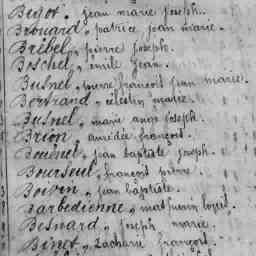 Bigot, jean marie joseph.
Brouard, patrice jean marie.
Brébel, pierre joseph.
Boschel, émile jean.
Busnel, pierre françois jean marie.
Bertrand, célestin marie.
Busnel, marie ange joseph.
Brion, amédée françois.
Bouënel, jean baptiste joseph.
Bourseul, françois pierre.
Boivin, jean baptiste.
Barbedienne, mathurin louis.
Besnard, joseph marie.
Binet, Zacharie françois.